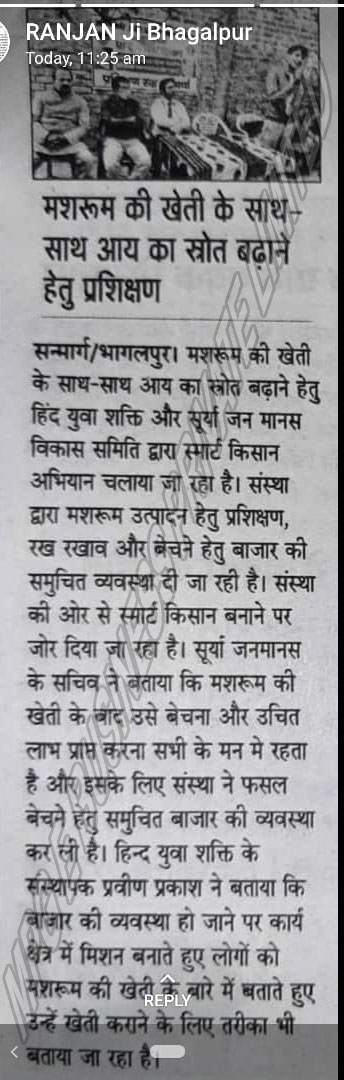 RANJAN Ji Bhagalpur
Today, 11:25 am
मशरूम की खेती के साथ-
साथ आय का स्रोत बढ़ाने
हेतु प्रशिक्षण
सन्मार्ग/भागलपुर। मशरूम की खेती
के साथ-साथ आय का स्त्रोत बढ़ाने हेतु
हिंद युवा शक्ति और सूर्या जन मानस
विकास समिति द्वारा स्मार्ट किसान
अभियान चलाया जा रहा है। संस्था
द्वारा मशरूम उत्पादन हेतु प्रशिक्षण,
रख रखाव और बेचने हेतु बाजार की
समुचित व्यवस्था दी जा रही है। संस्था
की ओर से स्मार्ट किसान बनाने पर
जोर दिया जा रहा है। सूर्या जनमानस
के सचिव ने बताया कि मशरूम की
खेती के बाद उसे बेचना और उचित
लाभ प्राप्त करना सभी के मन मे रहता
है और इसके लिए संस्था ने फसल
बेचने हेतु समुचित बाजार की व्यवस्था
कर ली है। हिन्द युवा शक्ति के
संस्थापक प्रवीण प्रकाश ने बताया कि
बाजार की व्यवस्था हो जाने पर कार्य
क्षेत्र में मिशन बनाते हुए लोगों को
मशरूम की खेती के बारे में बताते हुए
REPLY
उन्हें खेती कराने के लिए तरीका भी
बताया जा रहा है।